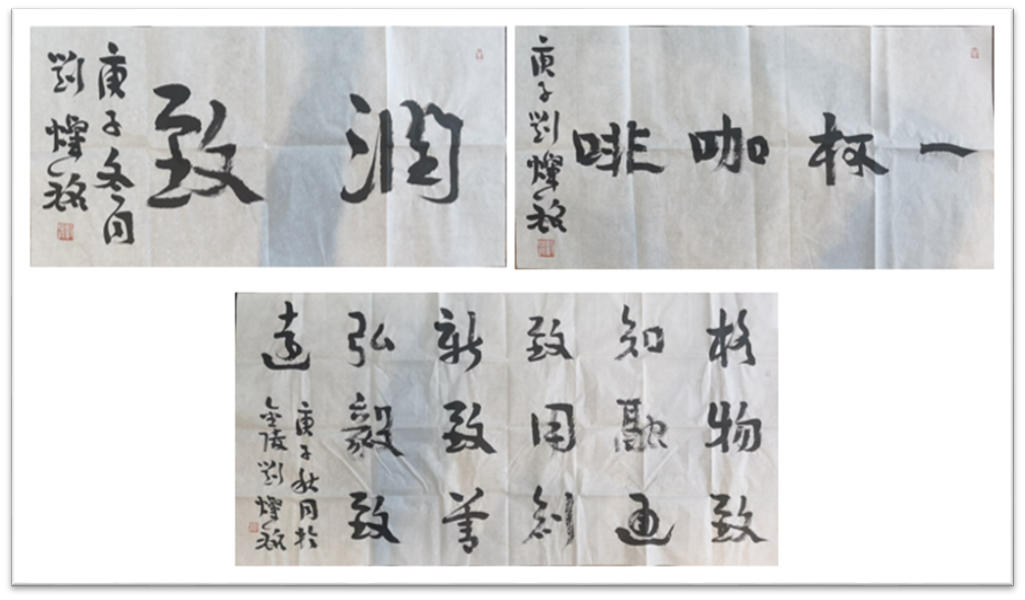 潤致
庚子冬月
劉燦銘
一杯咖啡
庚子劉燦銘
格物致
知融通
致用創
新致善
弘毅致
遠
庚子秋月於
金陵劉燦銘